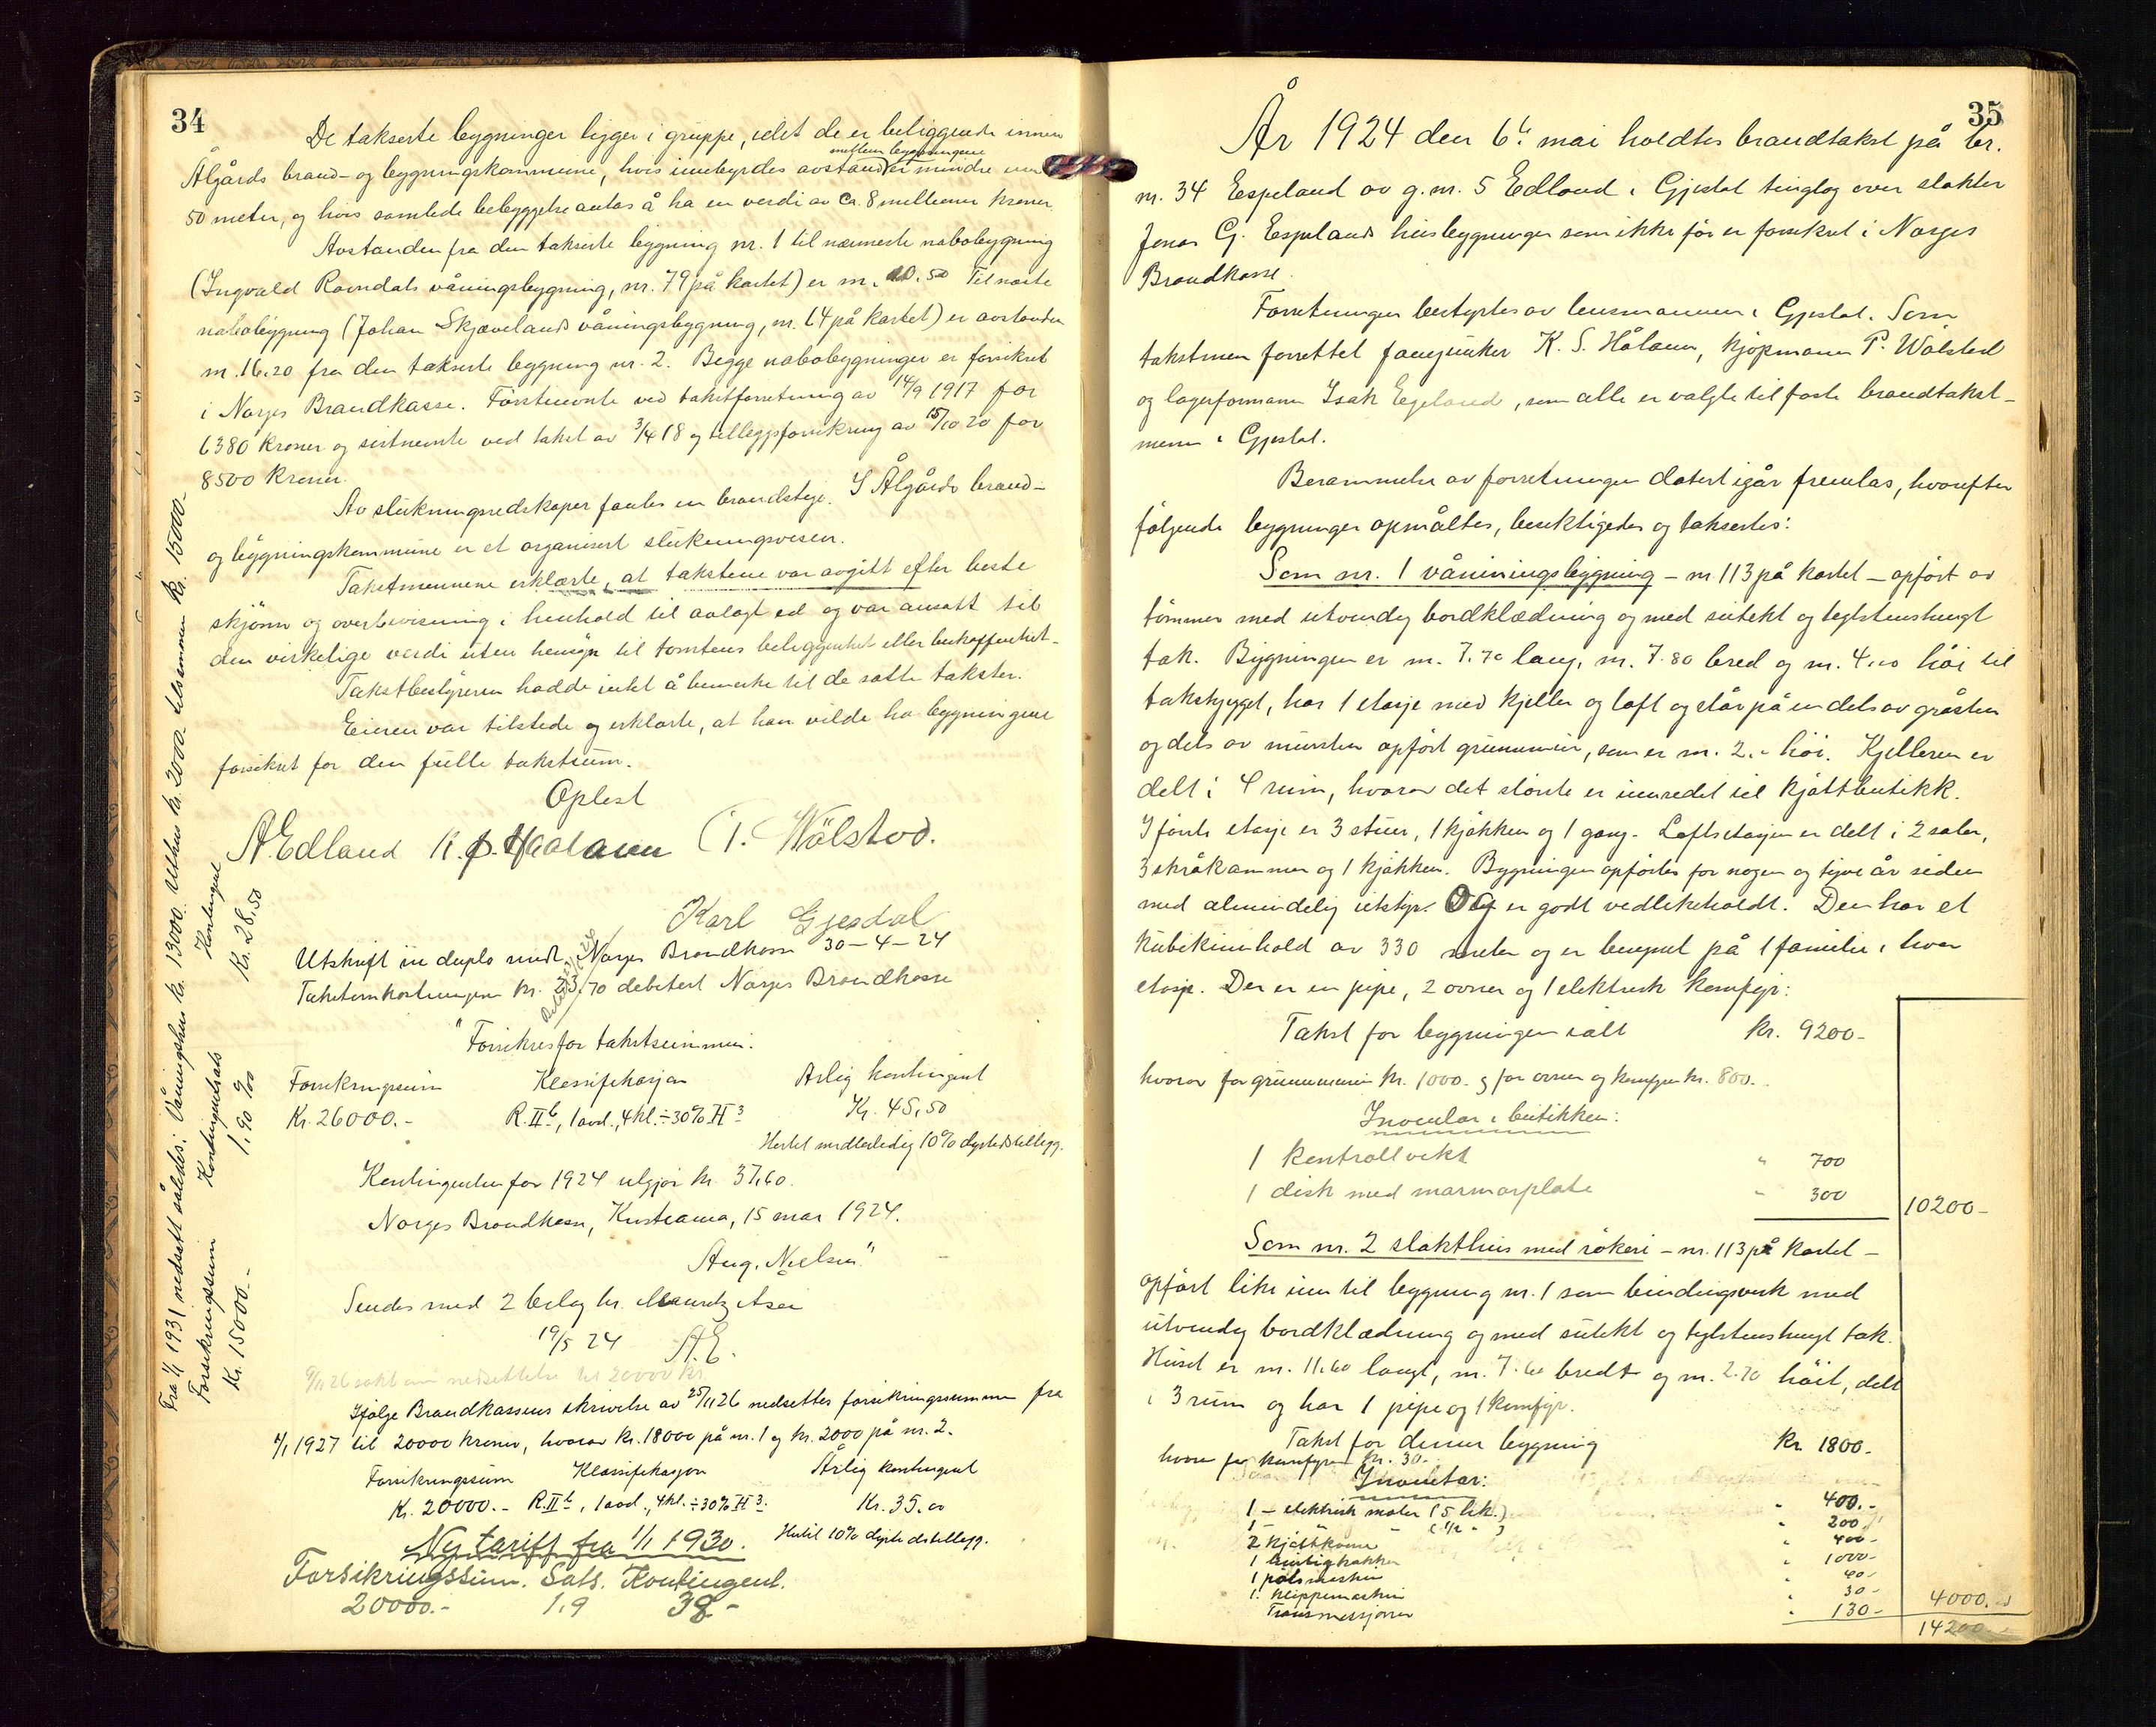 34
De takserte bygninger ligger i gruppe, idet de er beliggende innen
Ålgårds brand- og bygningskommune, hvis innbyrdes avstand mellem bygningene er mindre enn
50 meter, og hvis samlede bebyggelse antas å ha en verdi av ca. 8 millioner kroner.
Avstanden fra den takserte bygning nr. 1 til nærmeste nabobygning
(Ingvald Ravndals våningsbygning, nr. 79 på kartet) er m. 10.50 Til næste
nabobygning (Johan Skjævelands våningsbygning, nr. 64 på kartet) er avstanden
m. 16.20 fra den takserte bygning nr. 2. Begge nabobygninger er forsikret
i Norges Brandkasse. Førstnevnte ved takstforretning av 14/9 1917 for
6380 kroner og sistnevnte ved takst av 3/4 18 og tilleggsforsikring av 15/10 20 for
8500 kroner.
Av slukningsredskaper fantes en brandstige. I Ålgårds brand-
og bygningskommune er et organisert slukningsvesen.
Takstmennene erklærte, at takstene var avgitt efter beste
skjønn og overbevisning i henhold til avlagt ed og var ansatt til
den virkelige verdi uten hensyn til tomtens beliggenhet eller beskaffenhet.
Takstbestyreren hadde intet å bemerke til de satte takster.
Eieren var tilstede og erklærte, at han vilde ha bygningene
forsikret for den fulle takstsum.
Oplest
A. Edland K. S. Haalann P. Wålstod.
Karl Gjesdal
Utskrift in duplo sendt Norges Brandkasse 30-4-24
Takstomkostningene kr. 23.70 debitert Norges Brandkasse
"Forsikres for takstsummen.
Forsikringssum Klassifikasjon Årlig kontingent
Kr. 26000.- R. II b, 1 avd., 4 kl. ÷ 30% H 3 Kr. 45,50
Hertil midlertidig 10% dyrtidstillegg.
Kontingenten for 1924 utgjør kr. 37,60.
Norges Brandkasse, Kristiania, 15 mai 1924.
Aug. Nielsen"
Sendes med 2 bilag hr.
19/5 24 A.E.
9/11 26 søkt om nedsettelse til 20000 kr.
Ifølge Brandkassens skrivelse av 25/11 26 nedsettes forsikringssummen fra
1/1 1927 til 20000 kroner, hvorav kr. 18000 på nr. 1 og kr. 2000 på nr. 2.
Forsikringssum Klassifikasjon Årlig kontingent
Kr. 20000.- R. II b, 1 avd., 4 kl. ÷ 30% H 3. Kr. 35.00
Hertil 10% dyrtidstillegg.
Ny tariff fra 1/1 1930.
Forsikringssum. Sats. Kontingent.
20000.- 1,9 38.-
Fra 1/1 1931 nedsatt således: Våningshus kr. 13000. Uthus kr. 2000.- tilsammen kr. 15000.-
Forsikringssum Kontingentsats Kontingent
Kr. 15000.- 1,90 ‰ Kr. 28,50
35
År 1924 den 6te mai holdtes brandtakst på br.
nr. 34 Espeland av g. nr. 5 Edland i Gjestal tinglag over slakter
Jonas G. Espelands husbygninger som ikke før er forsikret i Norges
Brandkasse.
Forretningen bestyrtes av lensmannen i Gjestal. Som
takstmenn forrettet fanejunker K. S. Hålann, kjøpmann P. Wålstod
og lagerformann Isak Egeland, som alle er valgte til faste brandtakst-
menn i Gjestal.
Berammelse av forretningen datert igår fremlas, hvorefter
følgende bygninger opmåltes, besiktigedes og taksertes:
Som nr. 1 våningsbygning - nr 113 på kartet - opført av
tømmer med utvendig bordklædning og med sutekt og teglstenshengt
tak. Bygningen er m. 7.70 lang, m. 7.80 bred og m. 4.00 høi til
takskjegget, har 1 etasje med kjeller og loft og står på en dels av gråsten
og dels av mursten opført grunnmur, som er m. 2.- høi. Kjelleren er
delt i 4 rum, hvorav det største er innredet til kjøttbutikk.
I første etasje er 3 stuer, 1 kjøkken og 1 gang. Loftsetasjen er delt i 2 saler,
3 skråkammer og 1 kjøkken. Bygningen opførtes for nogen og tyve år siden
med almindelig utstyr. Og er godt vedlikeholdt. Den har et
kubikinnhold av 330 meter og er beregnet på 1 familie i hver
etasje. Der er en pipe, 2 ovner og 1 elektrisk komfyr:
Takst for bygningen ialt kr. 9200-
hvorav for grunnmuren kr. 1000.- og for ovner og komfyr kr. 800.-
Inventar i butikken:
1 kontrollvekt " 700
1 disk med marmorplate " 300 10200-
Som nr. 2 slakthus med røkeri - nr. 113 på kartet -
opført like inn til bygning nr. 1 som bindingsverk med
utvendig bordklædning og med sutekt og teglstenshengt tak.
Huset er m. 11.60 langt, m. 7.60 bredt og m. 2.70 høit, delt
i 3 rum og har 1 pipe og 1 komfyr.
Takst for denne bygning kr. 1800.-
hvorav for komfyren kr. 30.-
Inventar:
1 - elektrisk motor (5 hk.) " 400.-
1 - " - (1/2 " ) " 200.-
2 kjøttkverne " 400-
1 hurtighakker " 1000-
1 pølsmaskin " 40-
1. klippemaskin " 30-
Transmissjoner " 130- 4000.-
14200.-